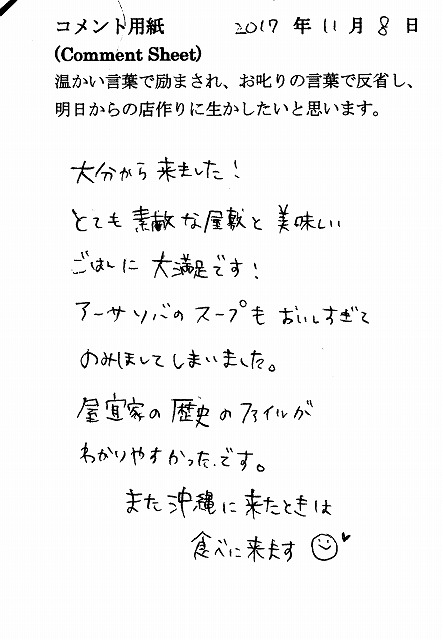 コメント用紙 2017 年 11 月 8 日
(Comment Sheet)
温かい言葉で励まされ、お叱りの言葉で反省し、
明日からの店作りに生かしたいと思います。
大分から来ました！
とても素敵な屋敷と美味しい
ごはんに大満足です！
アーサソバのスープもおいしすぎて
のみほしてしまいました。
屋宜家の歴史のファイルが
わかりやすかったです。
また沖縄に来たときは
食べに来ます